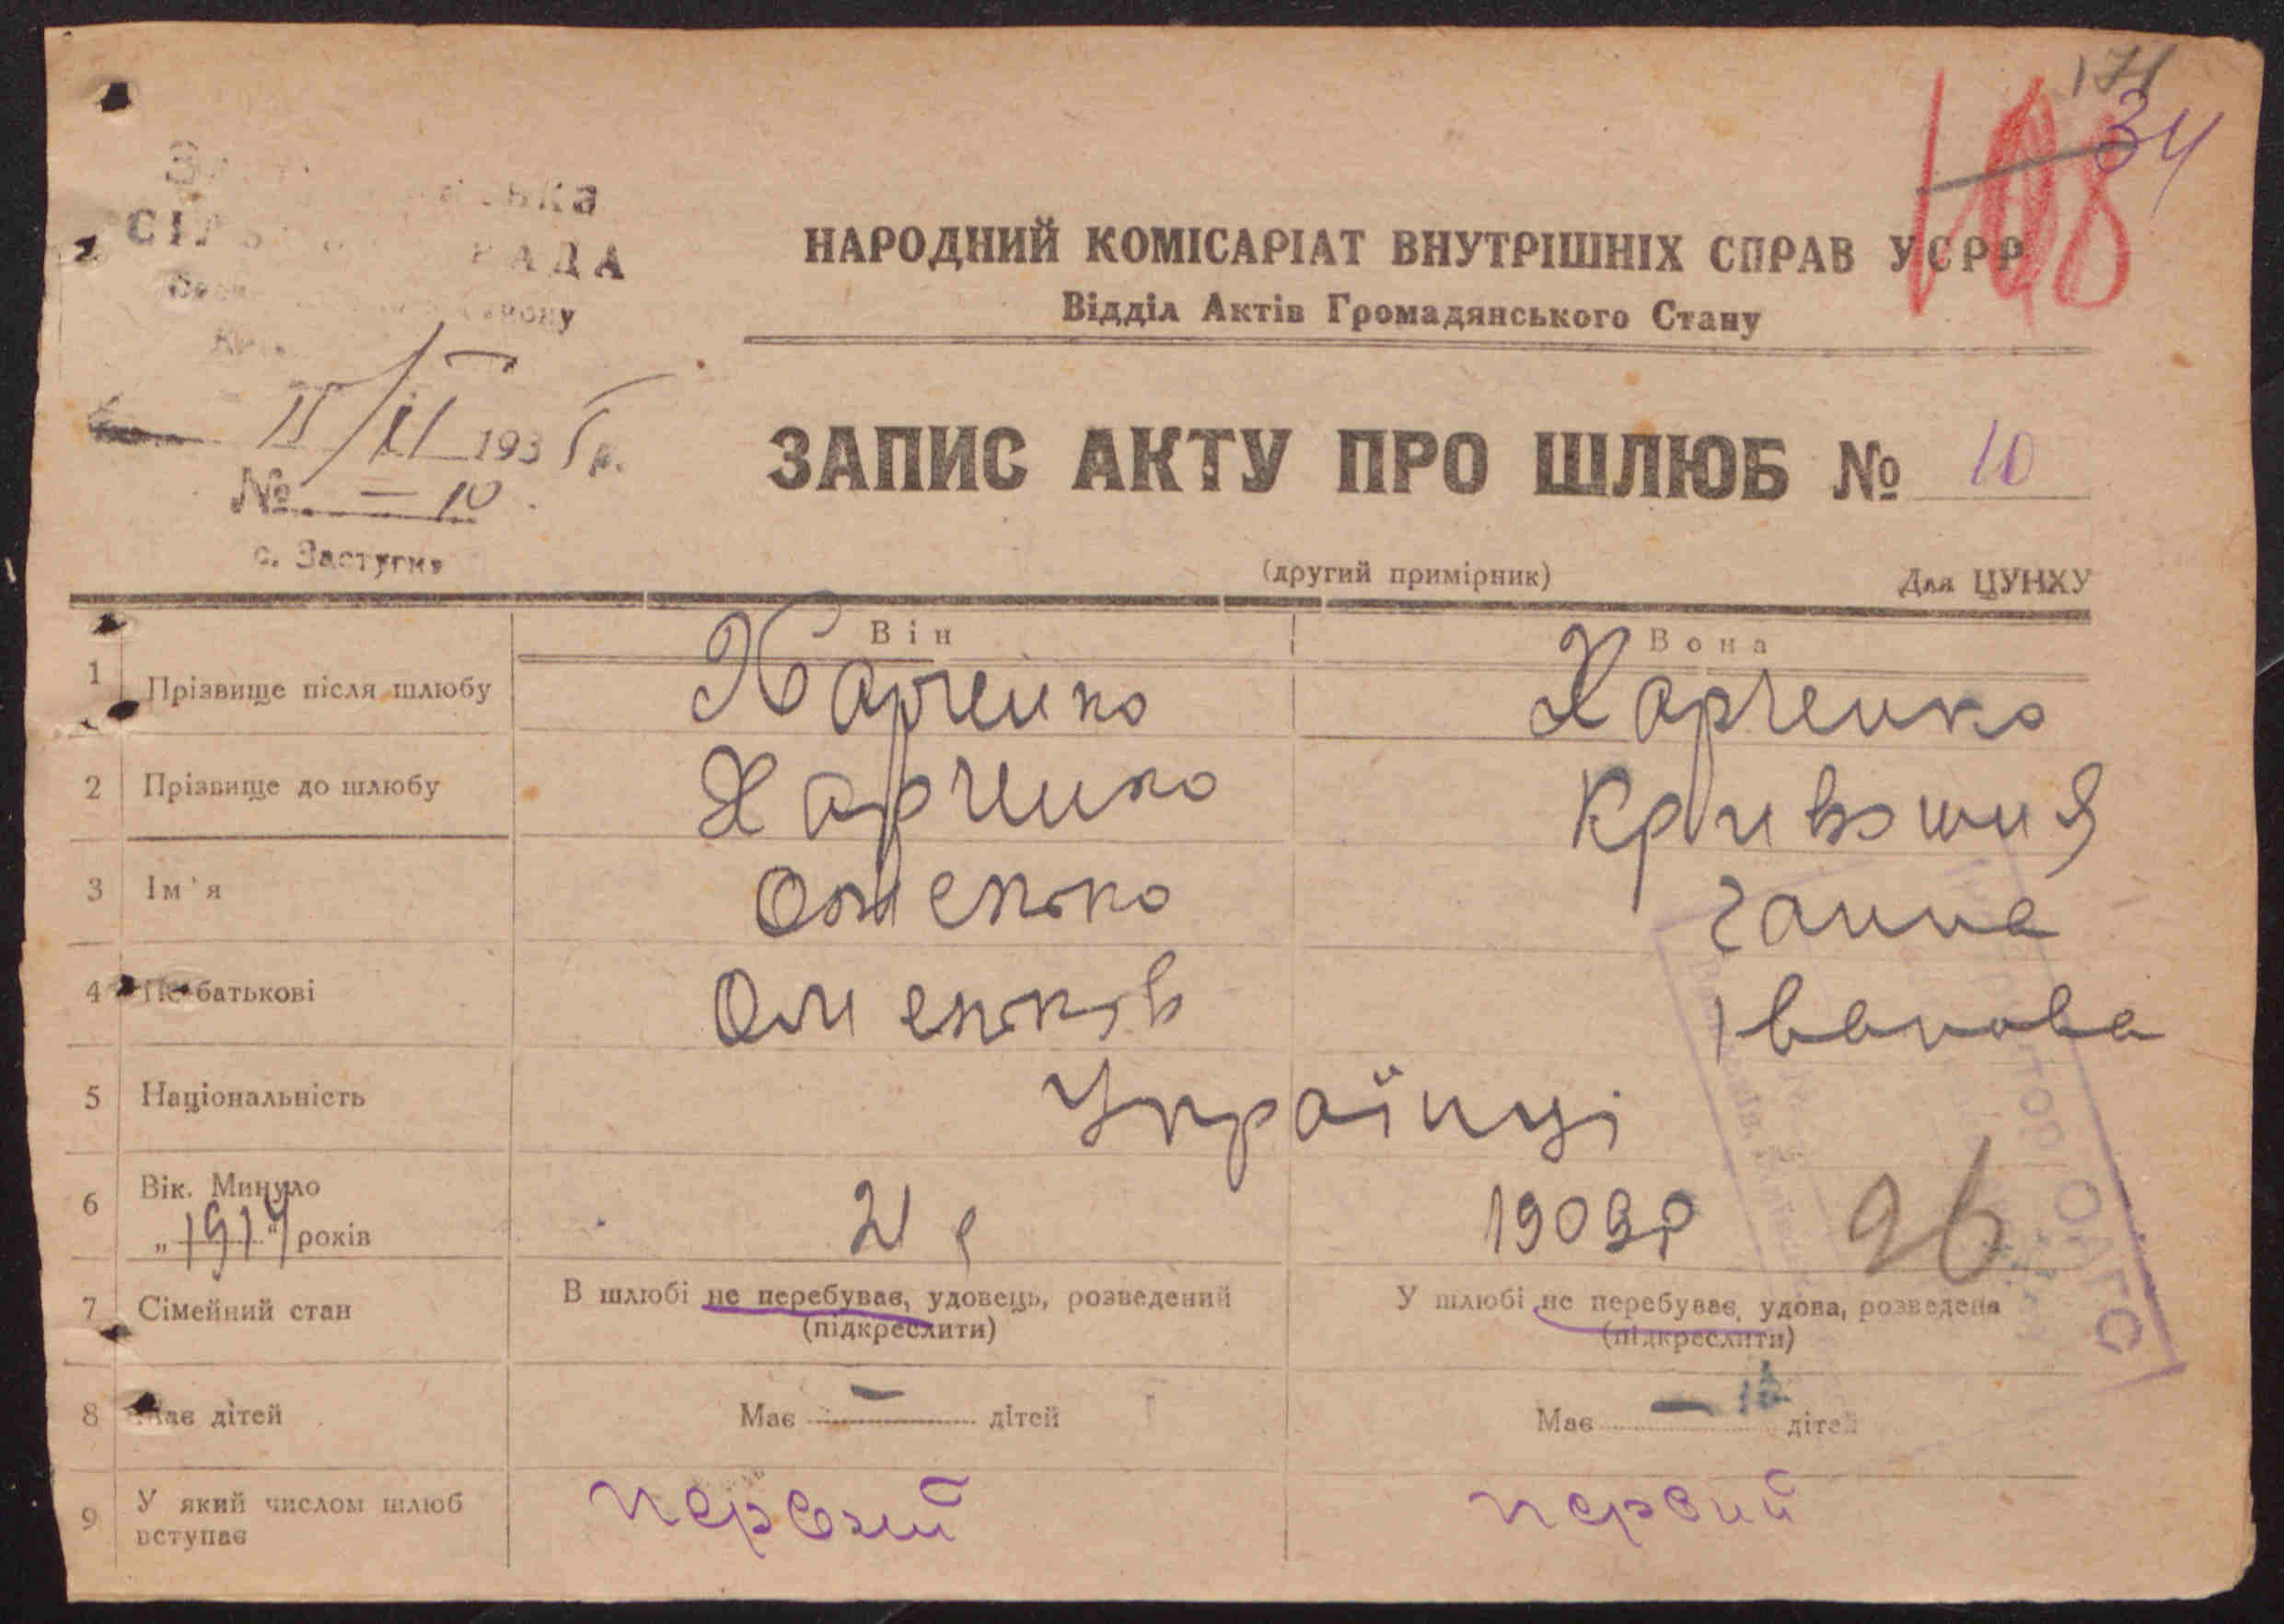 171
34
108
СІЛ РАДА
НАРОДНИЙ КОМІСАРІАТ ВНУТРІШНІХ СПРАВ УСРР
Відділ Актів Громадянського Стану
193 5 р.
№ — 10
ЗАПИС АКТУ ПРО ШЛЮБ № 10
с. Застугна
(другий примірник) Для ЦУНХУ
Він Вона
1 Прізвище після шлюбу Харченко Харченко
2 Прізвище до шлюбу Харченко Кривошия
3 Ім'я Омелько Ганна
4 По батькові Омельків Іванова
5 Національність Українці
6 Вік. Минуло
„1914" років 21 р 1909р 26
7 Сімейний стан В шлюбі не перебуває, удовець, розведений У шлюбі не перебуває, удова, розведена
(підкреслити) (підкреслити)
8 Має дітей Має — дітей Має — дітей
9 У який числом шлюб вступає первий первий
ОАГС